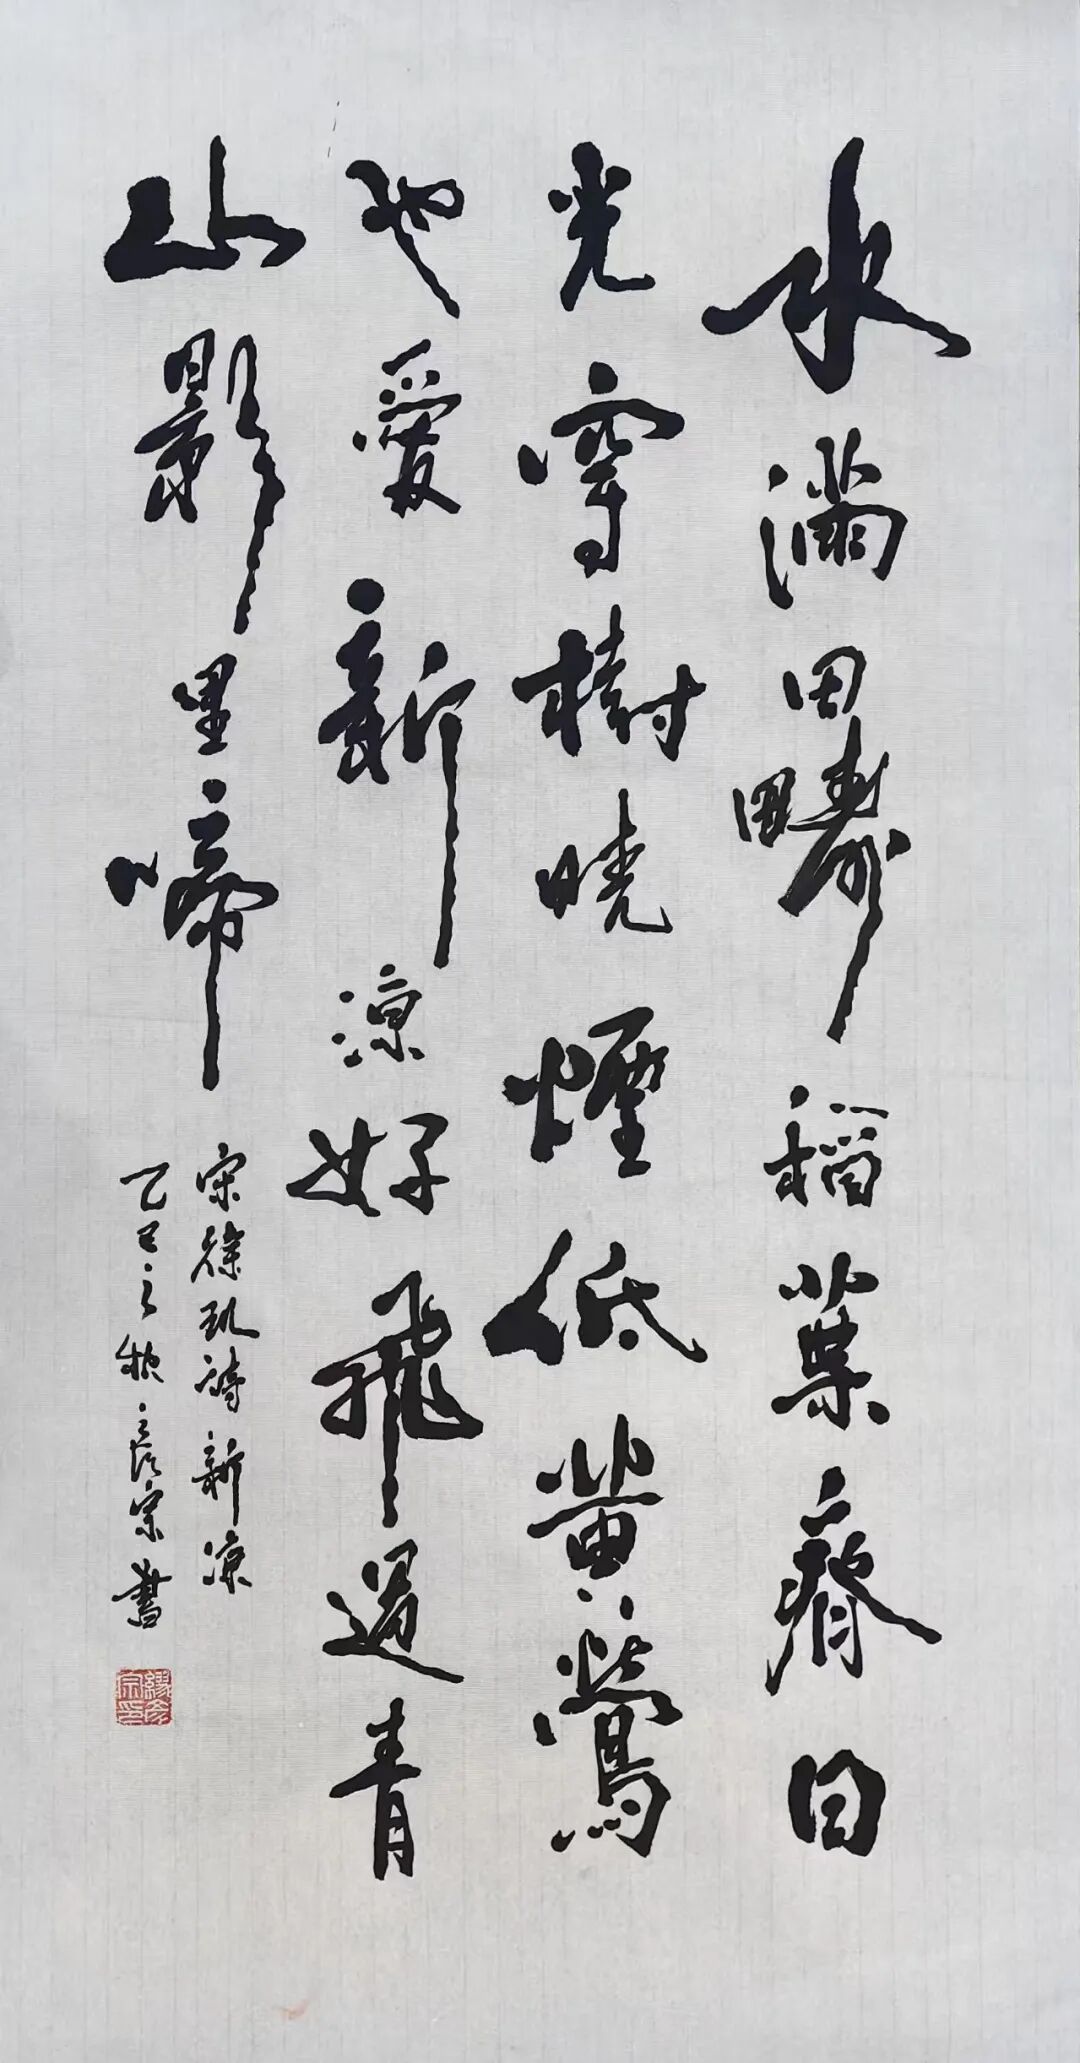 水滿田疇稻葉齊日
光穿樹曉煙低黃鶯
也愛新涼好飛過青
山影里啼
宋徐玑詩新涼
乙巳之秋彥宗書
繆彥宗印